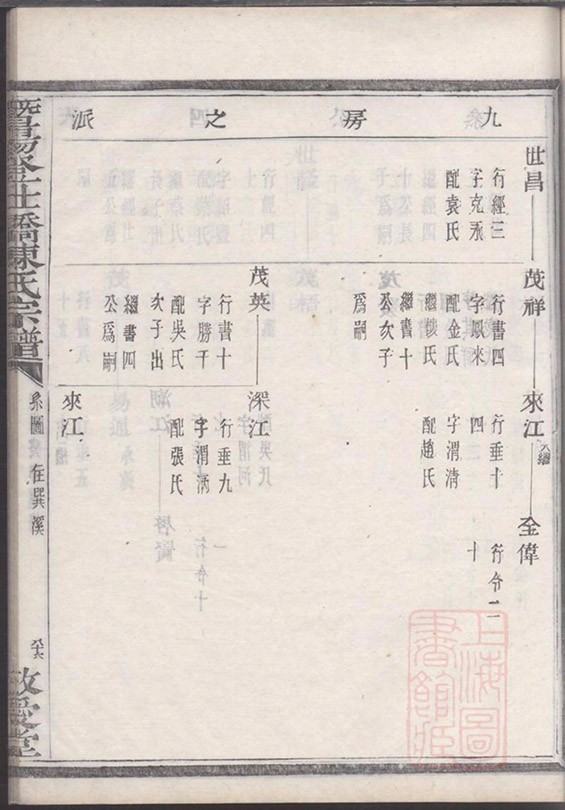 九房之派
世昌
行經三
字克永
配袁氏
茂祥
行書四
字鳳來
配金氏
繼魏氏
繼書十
公次子
爲嗣
來江 入繼
行垂十
四
字渭清
配趙氏
全偉
行令二
十
茂英
行書十
字勝千
配吳氏
次子出
繼書四
公爲嗣
深江
行垂九
字渭潮
配張氏
來江
暨陽
橋陳氏宗譜
系圖 在巽溪
敬愛堂
上海圖
書館藏